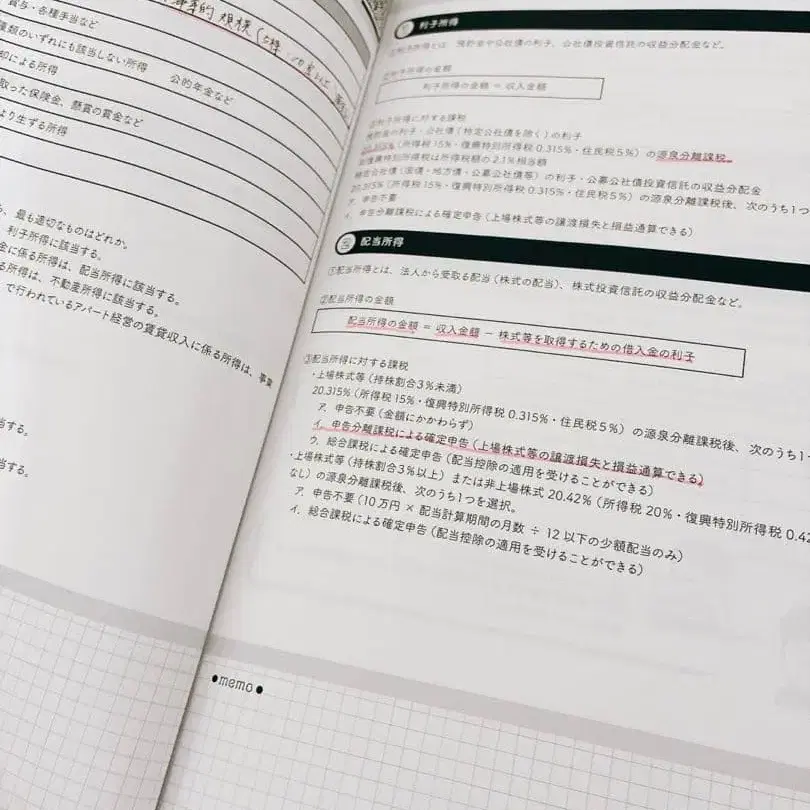 賞与・各種手当など
種類のいずれにも該当しない所得 公的年金など
による所得
取った保険金、懸賞の賞金など
より生ずる所得
最も適切なものはどれか。
利子所得に該当する。
金に係る所得は、配当所得に該当する。
る所得は、不動産所得に該当する。
で行われているアパート経営の賃貸収入に係る所得は、事業
当する。
当する。
利子所得
①利子所得とは、預貯金や公社債の利子、公社債投資信託の収益分配金など。
②利子所得の金額
利子所得の金額 = 収入金額
③利子所得に対する課税
預貯金の利子・公社債(特定公社債を除く)の利子
20.315%(所得税15%・復興特別所得税0.315%・住民税5%)の源泉分離課税。
復興特別所得税は所得税額の2.1%相当額
特定公社債(国債・地方債・公募公社債等)の利子・公募公社債投資信託の収益分配金
20.315%(所得税15%・復興特別所得税0.315%・住民税5%)の源泉分離課税後、次のうち1つ
ア. 申告不要
イ. 申告分離課税による確定申告(上場株式等の譲渡損失と損益通算できる)
2 配当所得
①配当所得とは、法人から受取る配当(株式の配当)、株式投資信託の収益分配金など。
②配当所得の金額
配当所得の金額 = 収入金額 − 株式等を取得するための借入金の利子
③配当所得に対する課税
・上場株式等(持株割合3%未満)
20.315%(所得税15%・復興特別所得税0.315%・住民税5%)の源泉分離課税後、次のうち1
ア. 申告不要(金額にかかわらず)
イ. 申告分離課税による確定申告(上場株式等の譲渡損失と損益通算できる)
ウ. 総合課税による確定申告(配当控除の適用を受けることができる)
・上場株式等(持株割合3%以上)または非上場株式20.42%(所得税20%・復興特別所得税0.42
なし)の源泉分離課税後、次のうち1つを選択。
ア. 申告不要(10万円 × 配当計算期間の月数 ÷ 12以下の少額配当のみ)
イ. 総合課税による確定申告(配当控除の適用を受けることができる)
●memo●